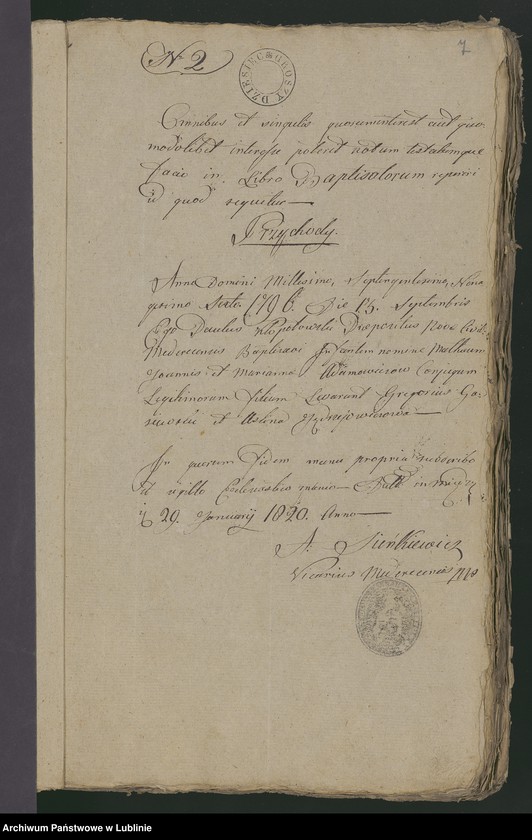 N 2
7
DZIESIEC GROSZY
Omnibus et singulis quorum interest aut quo-
modolibet interesse poterit notum testatumque
facio in Libro Baptisatorum reperiri
id quod sequitur
Przychody.
Anno Domini Millesimo, Septingentesimo, Nona
gesimo Sexto 1796. Die 15. Septembris
Ego Paulus Kłopotowski Praepositus
Baptizavi Infantem nomine
Joannis et Marianna Adamowiczow Conjugum
Legitimorum Filium Levarunt Gregorius
et
In quorum Fidem manu propria subscribo
et sigillo Ecclesiastico munio
29. Januarij 1820. Anno
A. Sienkiewicz
Vicarius
Archiwum Państwowe w Lublinie